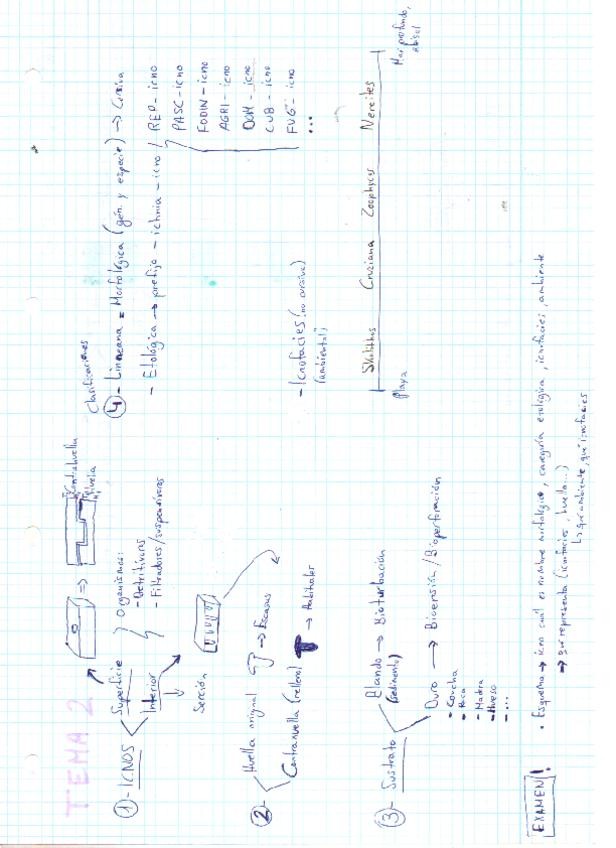 TEMA 2
① - ICNOS
Superficie
Interior
Organismos:
- Detritívoros
- Filtradores/suspensívoros
Contrahuella
Huella
Sección
②-
Huella original → Escasas
Contrahuella (relleno) → Habituales
③- Sustrato
Blando → Bioturbación
(sedimento)
Duro → Bioerosión/Bioperforación
- Concha
- Roca
- Madera
- Hueso
- ...
Clasificaciones
④- Linneana = Morfológica (gén. y especie) → Cursiva
- Etológica → prefijo - ichnia - icno
REP - icno
PASC - icno
FODIN - icno
AGRI - icno
DOM - icno
CUB - icno
FUG - icno
...
- Icnofacies (no cursiva)
(ambiental)
Skolithos Cruziana Zoophycos Nereites
Playa
Mar profundo, abisal
EXAMEN!
• Esquema → icno cuál es nombre morfológico, categoría etológica, icnofacies, ambiente
→ qué representa (icnofacies, huella...)
↳ qué ambiente, qué icnofacies